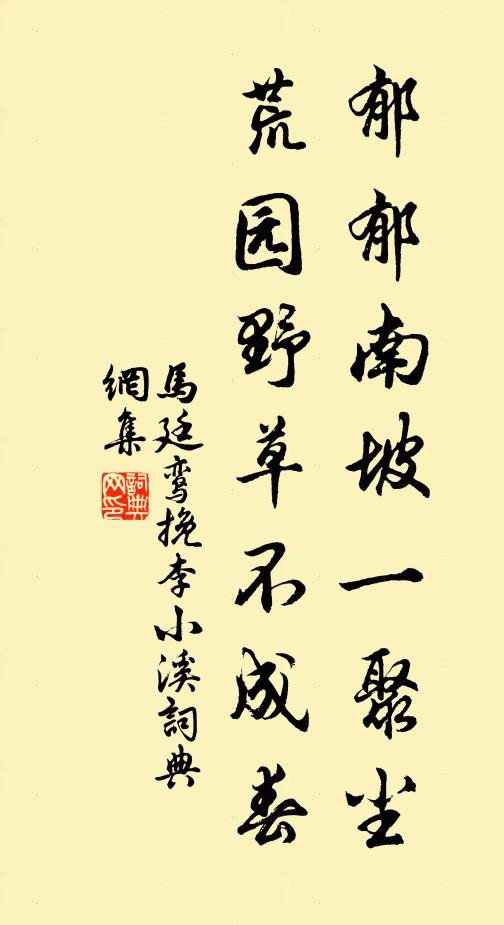 郁郁南坡一聚尘
荒园野草不成春
馬廷鸾挽李小溪詞典
網集
詞典
网印